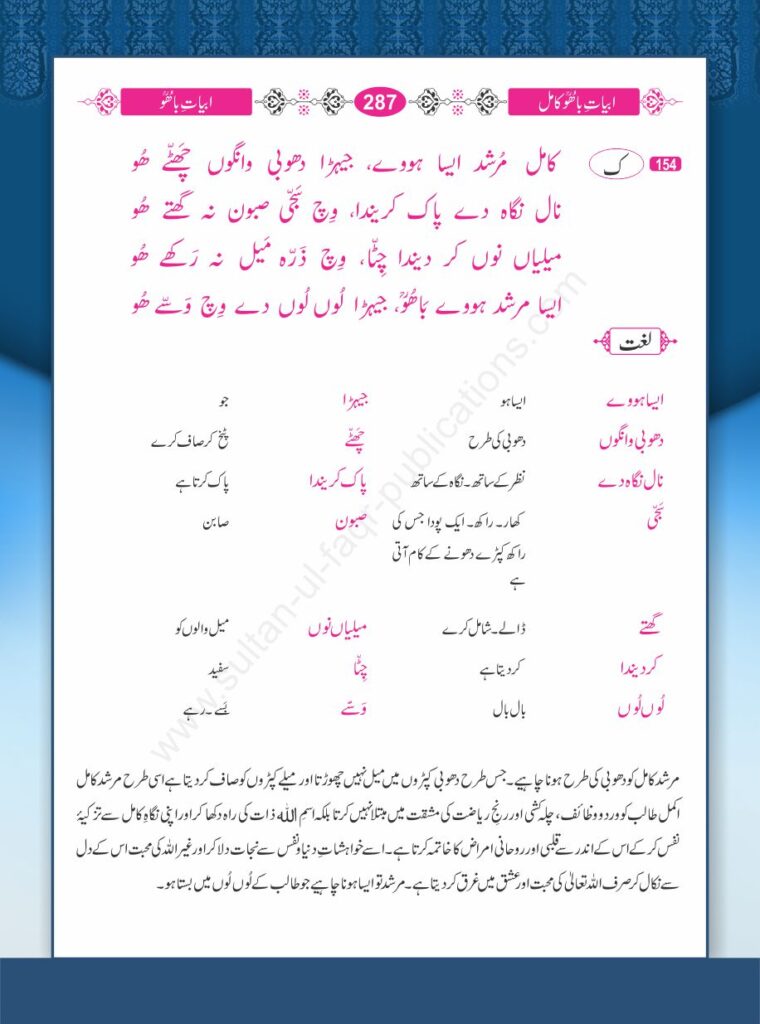 ابیاتِ باھُوؒ کامل 287 ابیاتِ باھُوؒ
154 ک
کامل مُرشد ایسا ہووے، جیہڑا دھوبی وانگوں چَھٹّے ھو
نال نگاہ دے پاک کریندا، وِچ سَجّی صبون نہ گھتے ھو
میلیاں نوں کر دیندا چِٹّا، وِچ ذَرّہ مَیل نہ رَکھے ھو
ایسا مرشد ہووے باھُوؒ، جیہڑا لُوں لُوں دے وِچ وَسّے ھو
لغت
ایسا ہووے ایسا ہو جیہڑا جو
دھوبی وانگوں دھوبی کی طرح چَھٹّے پٹخ کر صاف کرے
نال نگاہ دے نظر کے ساتھ۔ نگاہ کے ساتھ پاک کریندا پاک کرتا ہے
سَجّی کھار۔ راکھ۔ ایک پودا جس کی صبون صابن
راکھ کپڑے دھونے کے کام آتی
ہے
گھتے ڈالے۔ شامل کرے میلیاں نوں میل والوں کو
کر دیندا کر دیتا ہے چِٹّا سفید
لُوں لُوں بال بال وَسّے بَسے۔ رہے
مرشد کامل کو دھوبی کی طرح ہونا چاہیے۔ جس طرح دھوبی کپڑوں میں میل نہیں چھوڑتا اور میلے کپڑوں کو صاف کر دیتا ہے اسی طرح مرشد کامل
اکمل طالب کو ورد و وظائف، چلہ کشی اور رنجِ ریاضت کی مشقت میں مبتلا نہیں کرتا بلکہ اسمِ اللہ ذات کی راہ دکھا کر اور اپنی نگاہِ کامل سے تزکیۂ
نفس کر کے اس کے اندر سے قلبی اور روحانی امراض کا خاتمہ کرتا ہے۔ اسے خواہشاتِ دنیا و نفس سے نجات دلا کر اور غیر اللہ کی محبت اس کے دل
سے نکال کر صرف اللہ تعالیٰ کی محبت اور عشق میں غرق کر دیتا ہے۔ مرشد تو ایسا ہونا چاہیے جو طالب کے لُوں لُوں میں بستا ہو۔
www.sultan-ul-faqr-publications.com